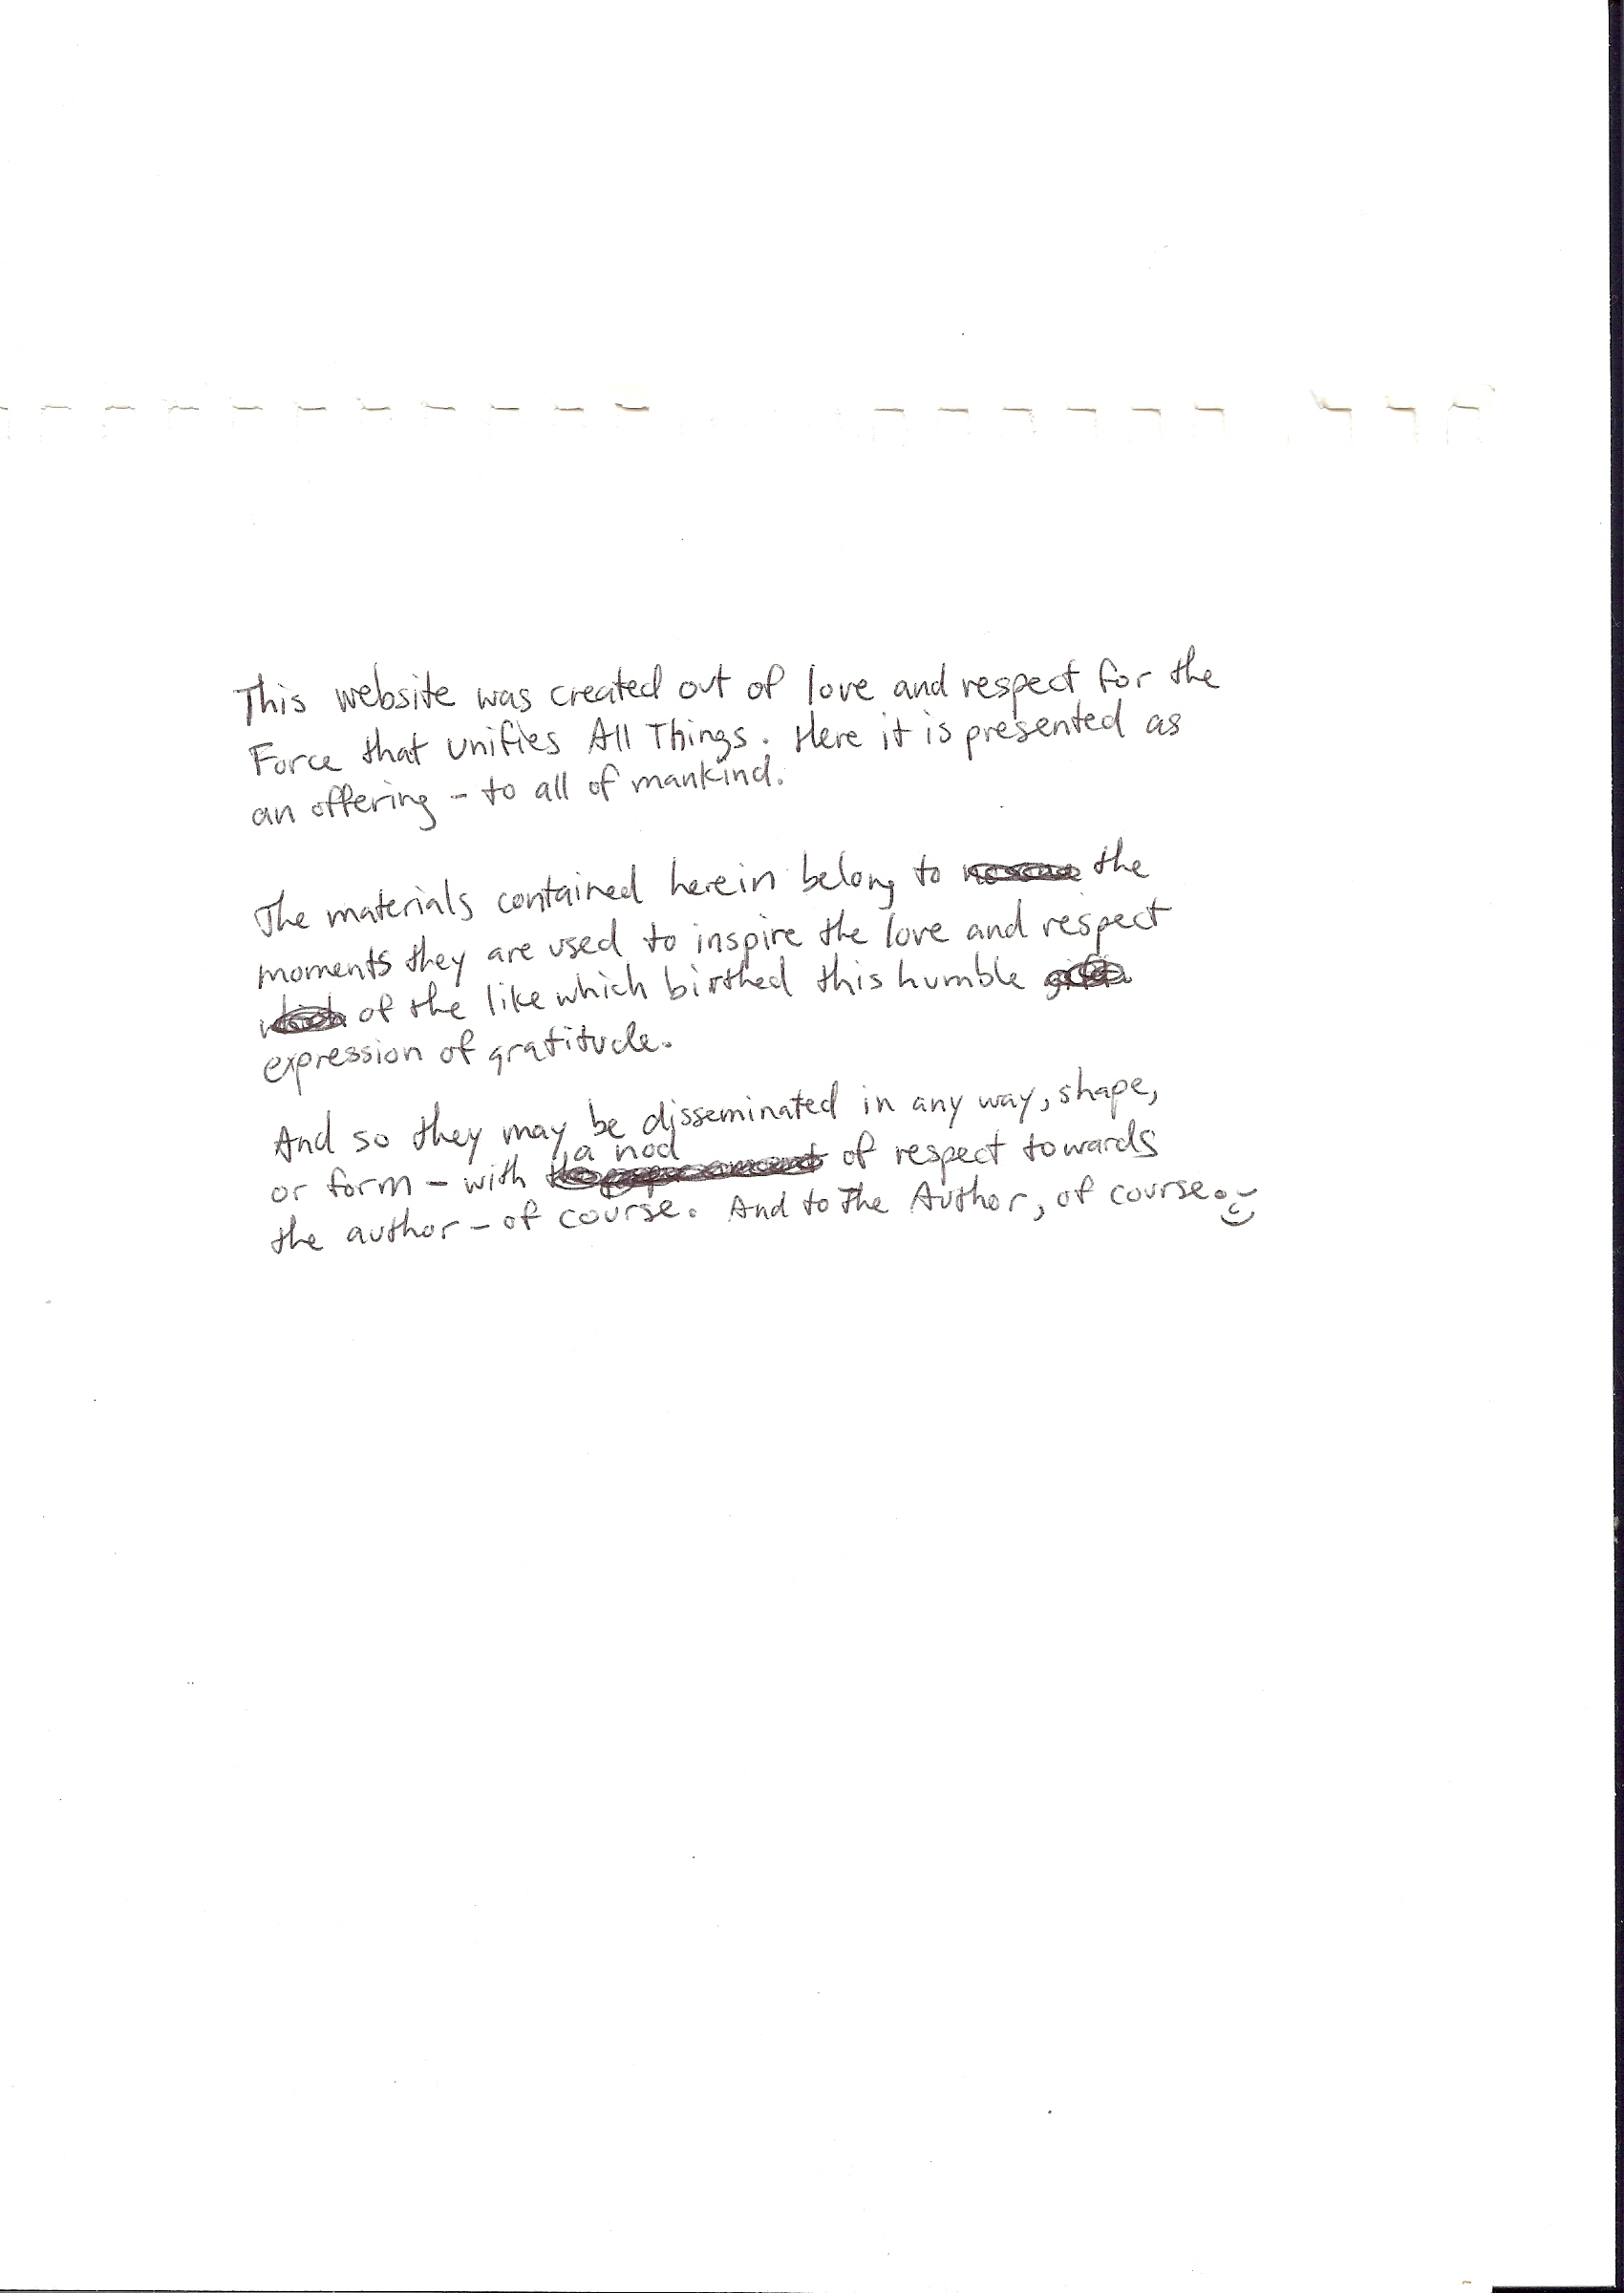 This website was created out of love and respect for the
Force that unifies All Things. Here it is presented as
an offering - to all of mankind.
The materials contained herein belong to the
moments they are used to inspire the love and respect
of the like which birthed this humble
expression of gratitude.
And so they may be disseminated in any way, shape,
a nod
or form - with of respect towards
the author - of course. And to The Author, of course.